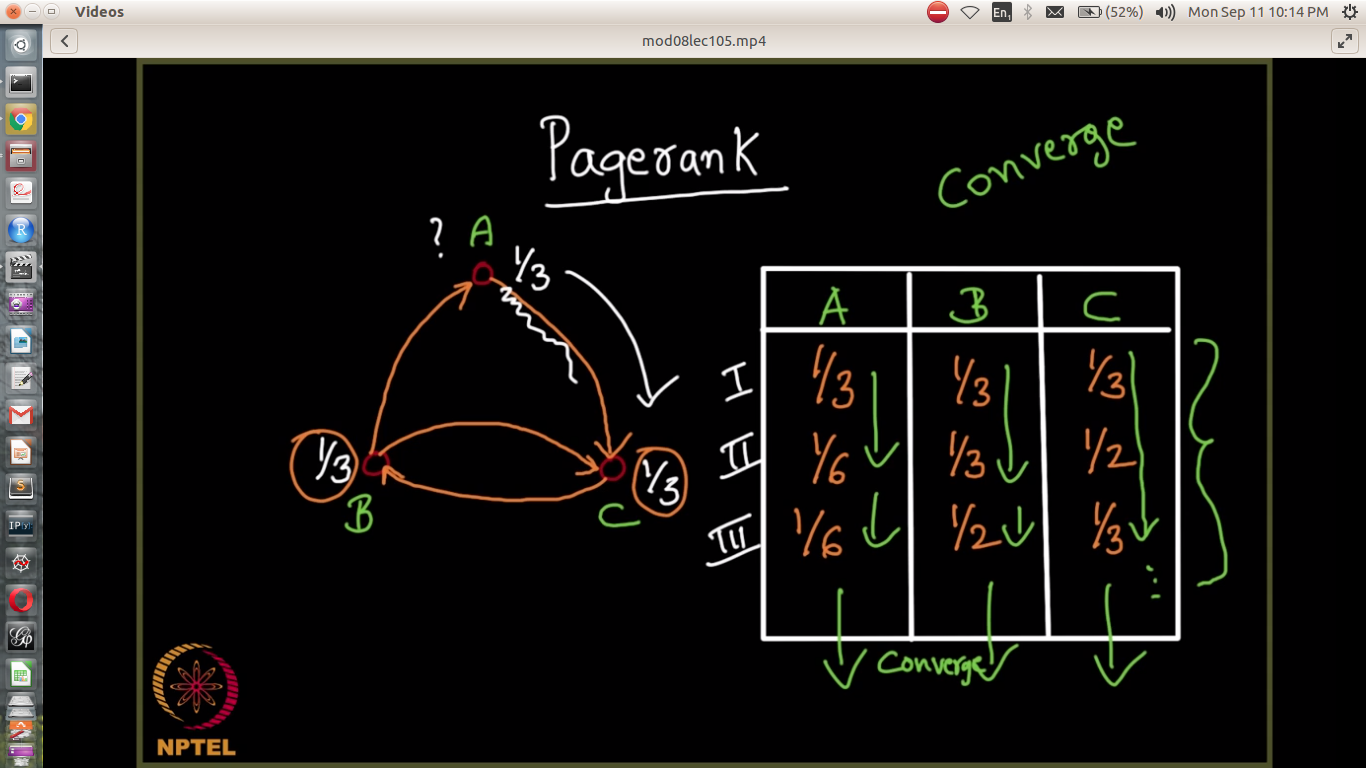 Videos
En1
(52%)
Mon Sep 11 10:14 PM
mod08lec105.mp4
Pagerank
Converge
? A
1/3
1/3
B
1/3
C
A B C
I 1/3 1/3 1/3
II 1/6 1/3 1/2
III 1/6 1/2 1/3
Converge
NPTEL